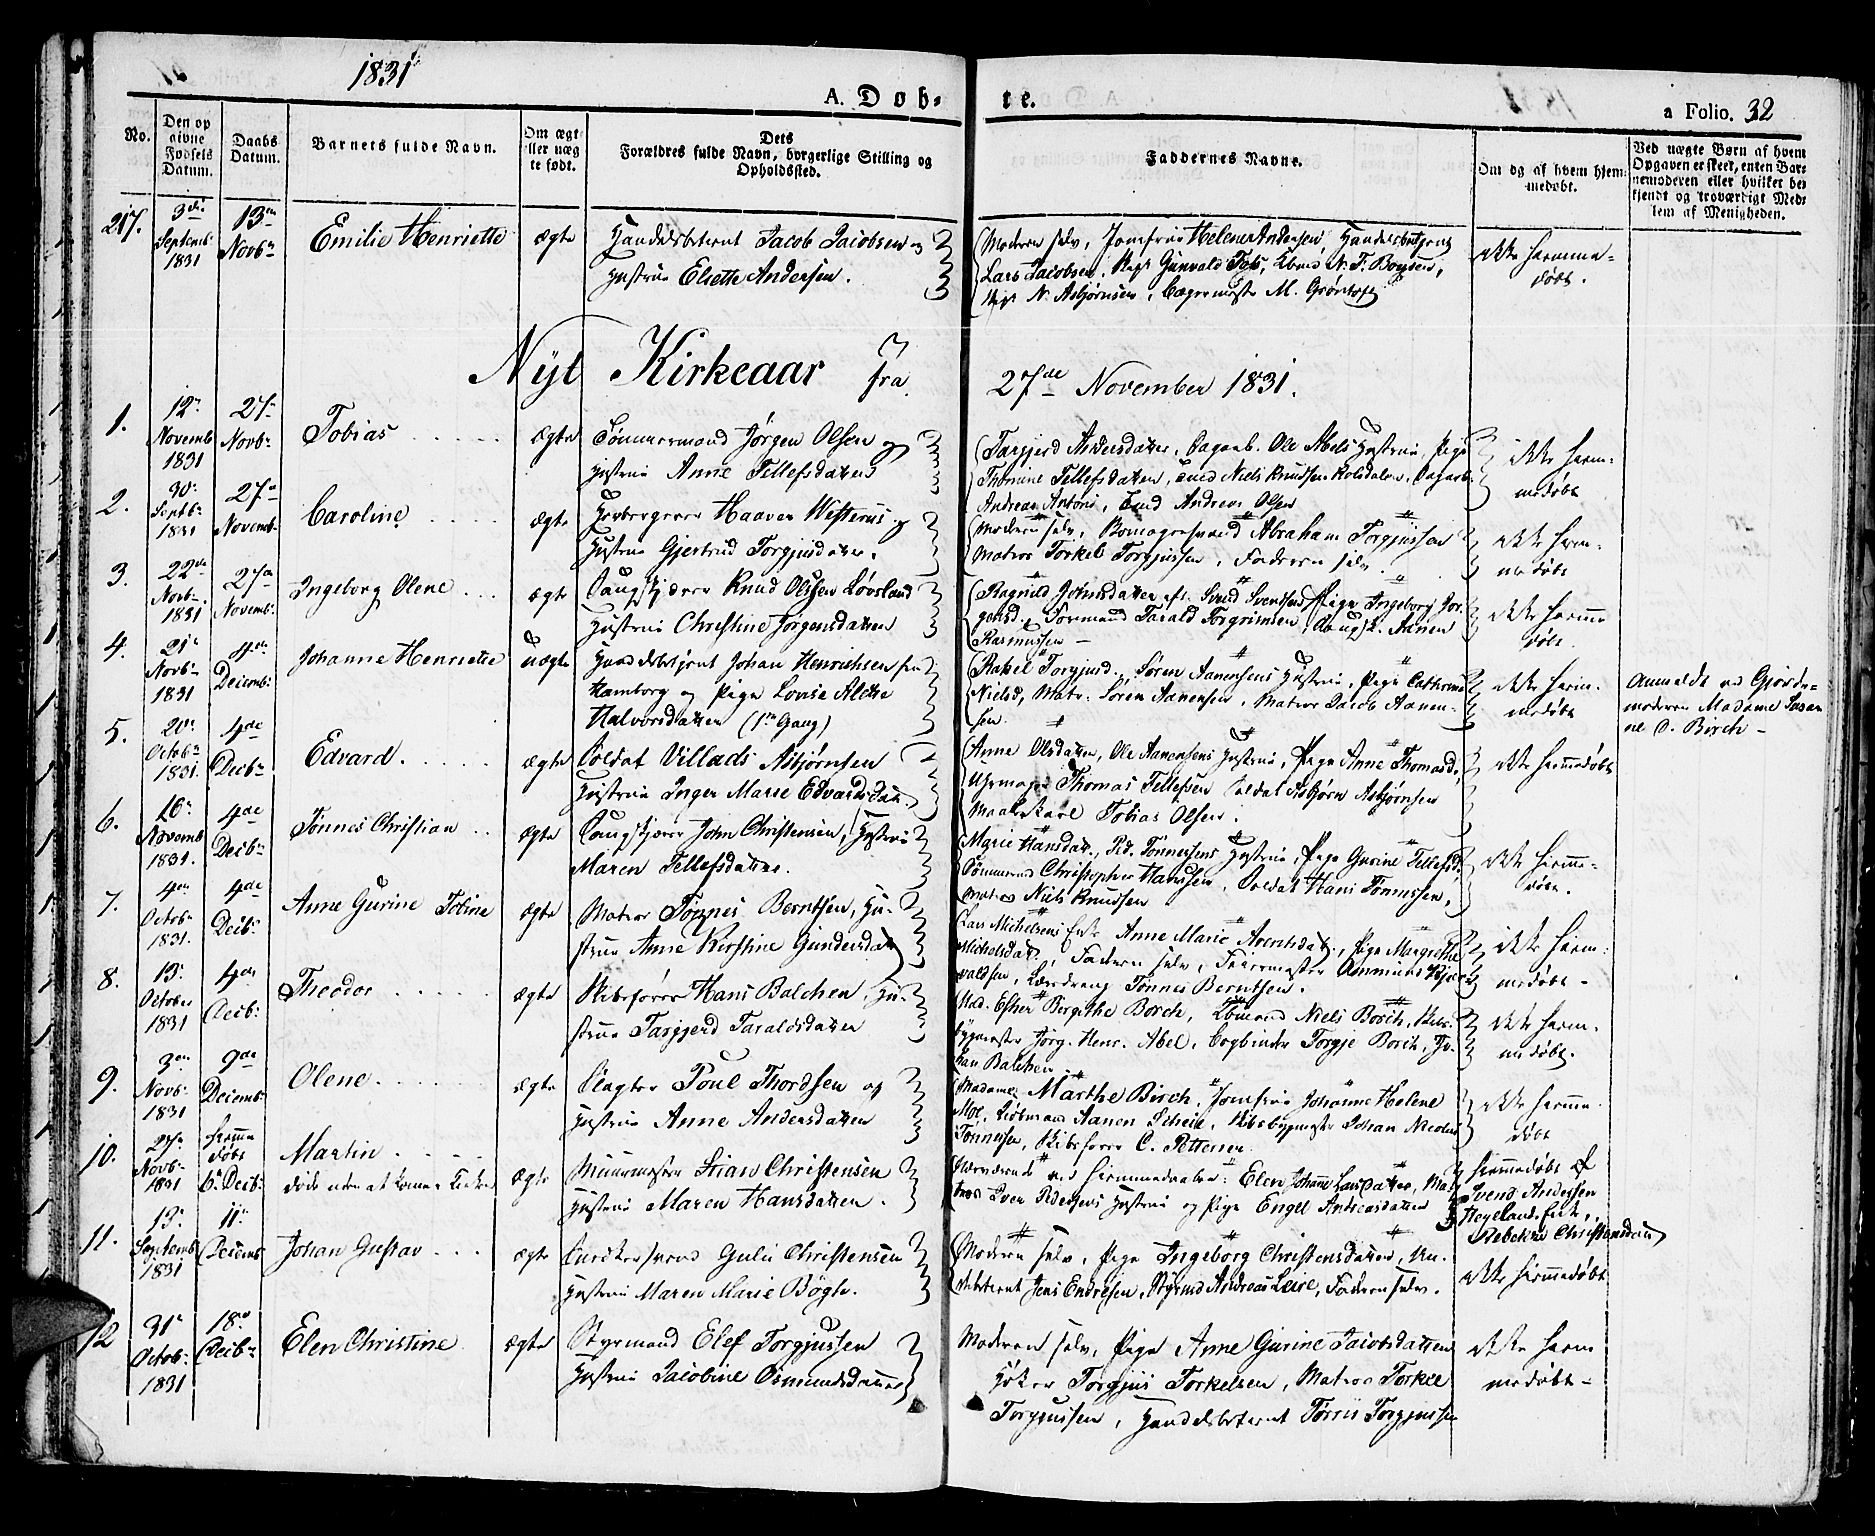 1831
A. Døb-
te.
a Folio. 32
No.
Den op
givne
Fødsels
Datum.
Daabs
Datum.
Barnets fulde Navn.
Om ægt
eller uæg
te født.
Dets
Forældres fulde Navn, borgerlige Stilling og
Opholdssted.
Faddernes Navne.
Om og af hvem hjem-
medøbt.
Ved uægte Børn af hvem
Opgaven er skeet, enten Bar-
nemoderen eller hvilket be-
kjendt og troværdigt Med-
lem af Menigheden.
217.
3die
Septemb:
1831
13de
Novb:
Emilie Henriette
ægte
Handelsbetient Jacob Jacobsen og
Hustrue Elsette Andersen.
Moderen selv, Jomfrue Helene Andersen, Handelsbetjent
Lars Jacobsen, Gunvald
N. Asbjørnsen, M.
ikke hjemme-
døbt.
Nyt Kirkeaar fra
27de November 1831.
1.
12te
Novemb
1831
27de
Novbr
Tobias
ægte
Tømmermand Jørgen Olsen og
Hustrue Anne Tellefsdatter
Targjerd Andersdatter, Ole Abels Hustrue, Pige
Thomine Tellefsdatter, Niels Knudsen
Andreas Antoni, Andreas Olsen
ikke hjem-
medøbt
2.
30te
Septbr
1831
27de
Novemb:
Caroline
ægte
Haaver
Hustrue Gjertrud Torgjusdatter.
Moderen selv, Abraham Torgjussen
Matros Torkel Torgjussen, Faderen selv.
ikke hjem-
medøbt
3.
22de
Novbr
1831
27de
Novemb:
Ingeborg Olene
ægte
Knud Olssen Løvsland
Hustrue Christine Jørgensdatter
Ragnild Johnsdatter, Svend Svendsens Pige Ingeborg Jør-
gensd., Tarald Torgrimsen, Aanen
Rasmussen
ikke hjemme
døbt.
4.
21de
Novbr
1831
4de
Decemb:
Johanne Henriette
uægte
Handelsbetjent Johan Henrichsen fra
Hamborg og Pige Lovise
Halvorsdatter (1ste Gang)
Rakel Torgjusd., Søren Aanensens Hustrue, Pige Cathrine
Nielsd, Matr. Søren Aanensen, Matros Jacob Aanen-
sen.
ikke hjem-
medøbt
Anmeldt ved Gjorde-
moderen Madame Susan-
ne C. Birch
5.
20de
Octobr
1831.
4de
Decbr
Edvard
ægte
Soldat Villads Asbjørnsen
Hustrue Inger Marie Edvardsdatt.
Anne Olsdatter, Ole Aanensens Hustrue, Pige Anne Thomasd.
Thomas Tellefsen, Soldat Asbjørn Asbjørnsen
Tobias Olsen.
ikke hjemmedøbt
6.
16de
Novemb
1831.
4de
Decbr
Tønnes Christian
ægte
John Christensen, Hustrue
Maren Tellefsdatter.
Marie Hansdat., Ped. Tønnessens Hustrue, Pige Gurine Tellefsd.
Tømmermd Christopher Hanssen, Soldat Hans Tønnessen,
Matros Niels Knudsen
ikke hjemme-
døbt.
7.
4de
Octob:
1831.
4de
Decb:
Anne Gurine Tobine
ægte
Matros Tønnes Berntsen, Hu-
strue Anne Kirstine Gundersdatt
Lars Michelsens Enke Anne Marie, Pige Margrethe
Michelsdat., Faderen selv,
Tønnes Berntsen.
ikke hjem-
medøbt
8.
13de
October
1831
4de
Decb:
Theodor
ægte
Skibsfører Hans Balchen, Hu-
strue Targjerd Taraldsdatter
Mad. Esther Bergithe Borch, Kbmand Niels Borch, Skibs-
bygmester Jørg. Henr. Abel, Bogbinder Torgje Borch, Jo-
han Balchen
ikke hjem-
medøbt.
9.
3de
Novb:
1831
9de
Decemb:
Olene
ægte
Slagter Poul Thordsen og
Hustrue Anne Andersdatter
Madame Marthe Birch, Jomfrue Johanne Helene
Moe, Kiøbmand Aanon Scheie, Skibsbygmester Johan Nicolai
Tønnesen, Skibsfører C. Pettersen
ikke hjemme
døbt
10.
27de
Novb:
1831
hjemme
døbt
6te Decb:
Martin
døde uden at komme i Kirke
ægte
Muurmester Stian Christensen
Hustrue Maren Hansdatter.
Nærværende ved hjemmedaaben: Elen Johanne Larsdatter, Ma-
tros Iver Pedersens Hustrue og Pige Engel Andreasdatter
hjemmedøbt af
Svend Andersen
Hegelands Enke,
Rebekka Christiansdatt
11.
13de
Septemb
1831
11te
Decemb
Johan Gustav
ægte
Gulu Christensen
Hustrue Maren Marie Bøgh.
Moderen selv, Pige Ingeborg Christensdatter, Un-
Jens Endresen, Styrmd Andreas Leire, Faderen selv.
ikke hjemmedøbt
12
31te
Octob:
1831
18de
Decbr
Elen Christine
ægte
Styrmand Elef Torgjussen
Hustrue Jacobine Osmundsdatter
Moderen selv, Pige Anne Gurine Jacobsdatter
Høker Torgjus Torkelsen, Matros Torkel
Torgjussen, Handelsbetient Tørris Torgjussen
ikke hjem
medøbt